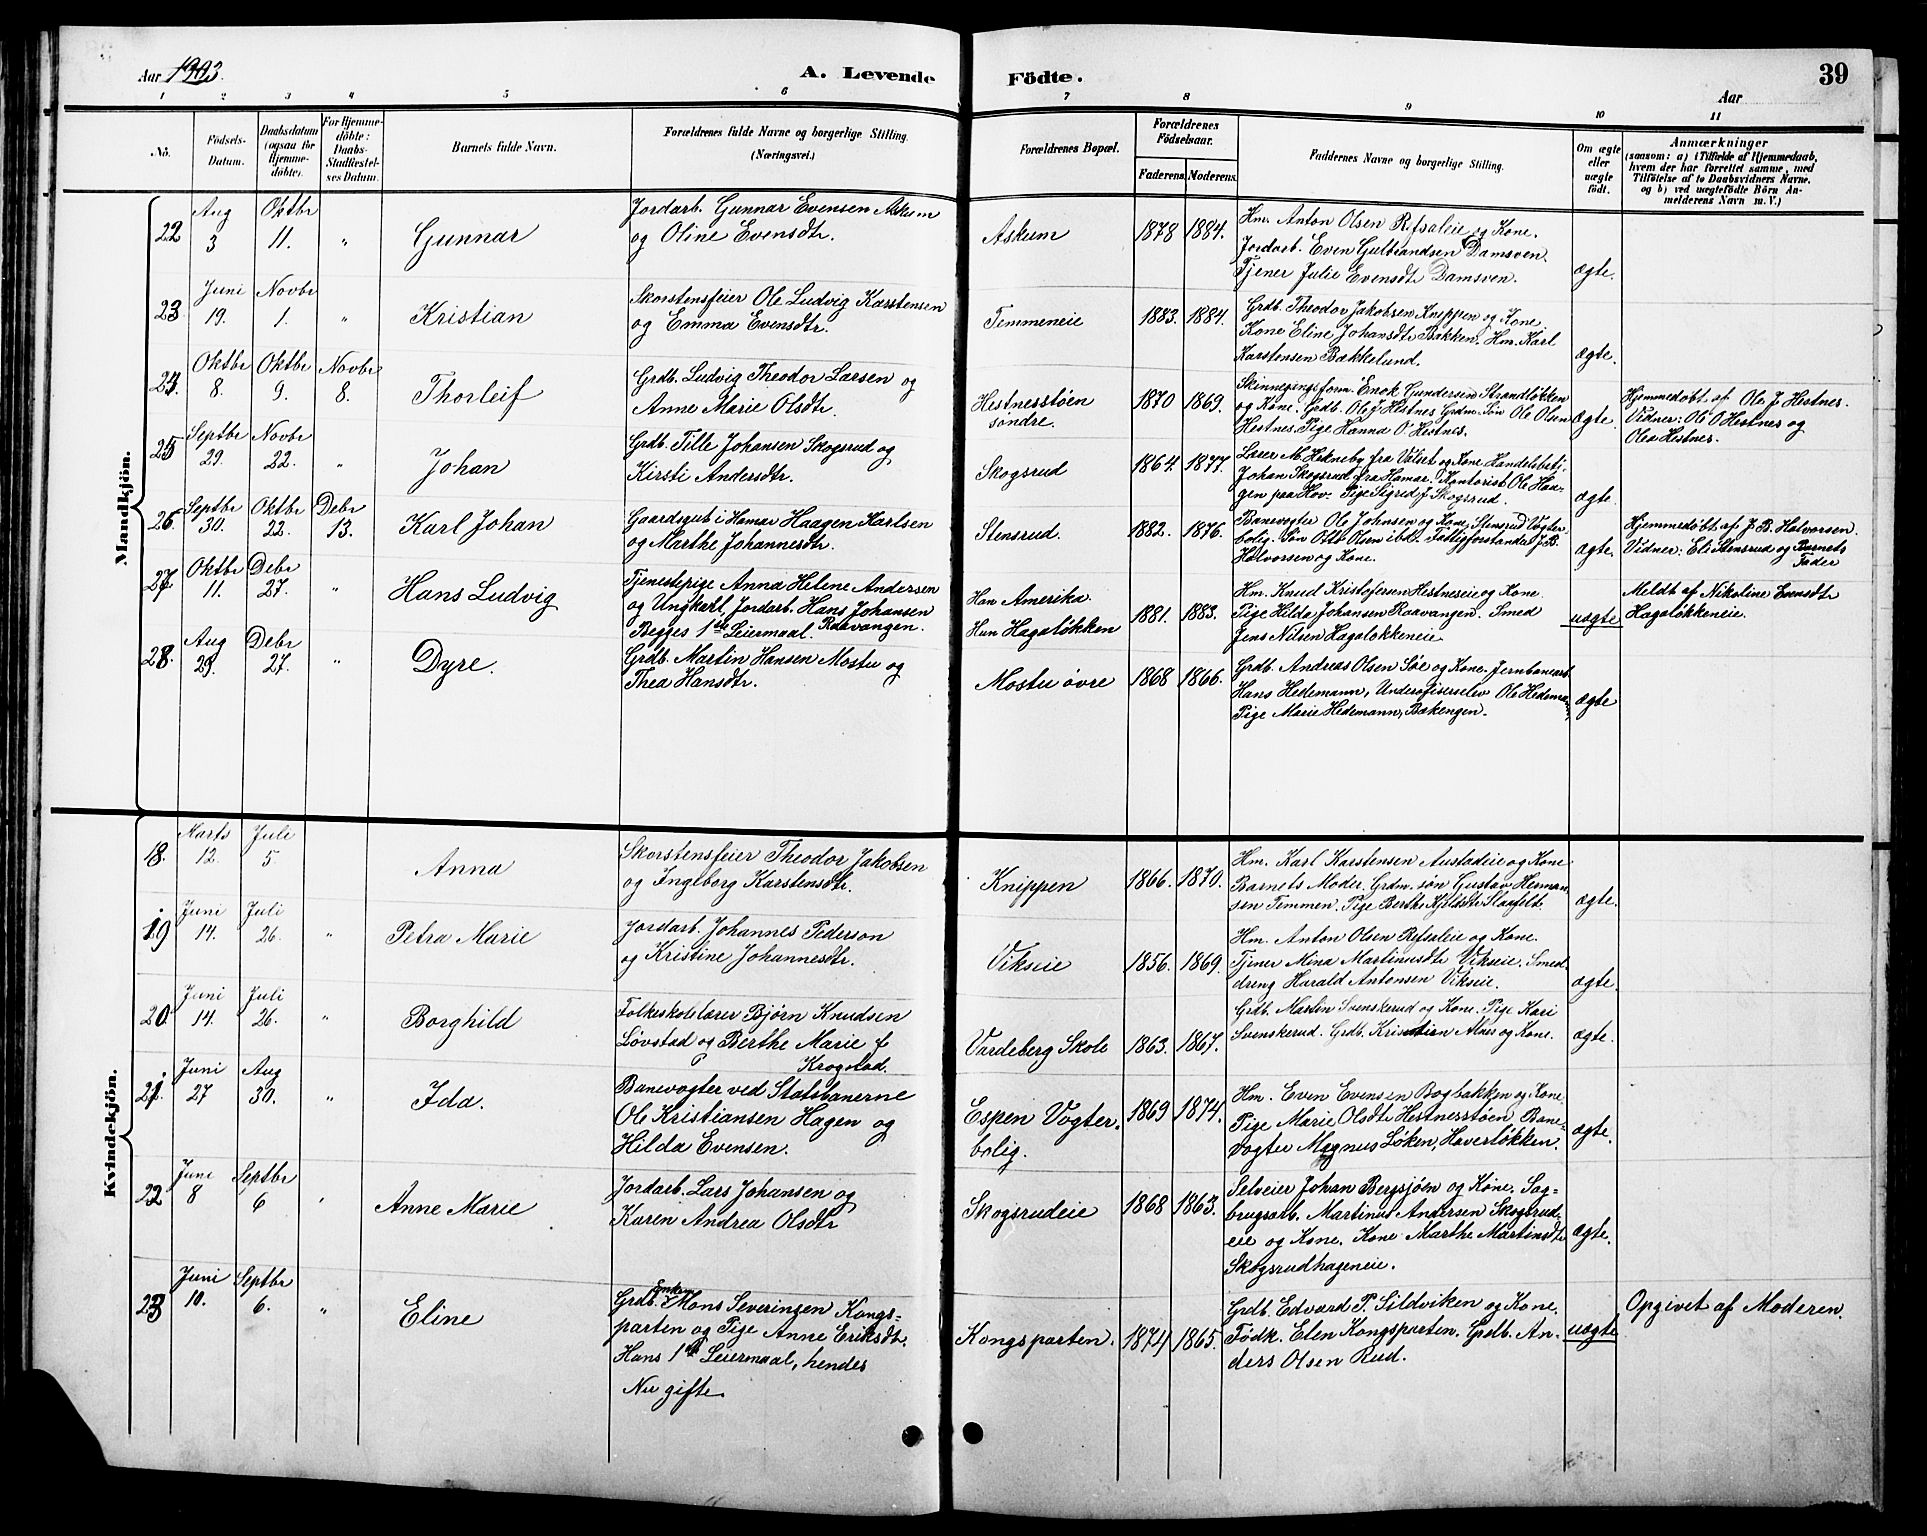 Aar 1903. A. Levende Födte. Aar 39
1 2 3 4 5 6 7 8 9 10 11
No. Födsels-Datum. Daabsdatum (ogsaa for Hjemme-döbte). For Hjemme-döbte: Daabs-Stadfæstel-ses Datum. Barnets fulde Navn. Forældrenes fulde Navne og borgerlige Stilling. (Næringsvei.) Forældrenes Bopæl. Forældrenes Födselsaar. Faderens. Moderens. Faddernes Navne og borgerlige Stilling. Om ægte eller uægte födt. Anmærkninger (saasom: a) i Tilfælde af Hjemmedaab, hvem der har forrettet samme, med Tilföielse af to Daabsvidners Navne, og b) ved uegtefödte Börn An-melderens Navn m. V.)
Mandkjön.
22 Aug 3 Oktbr 11. " Gunnar
Jordarb. Gunnar Evensen Askum
og Oline Evensdtr.
Askum 1878 1884.
Hm. Anton Olsen Refsaleie og Kone.
Jordarb. Even Gulbrandsen Damsven.
Tjener Julie Evensdtr Damsven.
ægte.
23 Juni 19. Novbr 1. " Kristian
Skorstensfeier Ole Ludvig Karstensen
og Emma Evensdtr.
Temmeneie 1883. 1884.
Grdb. Theodor Jakobsen Kneppen og Kone
Kone Eline Johansdtr Bakken. Hm. Karl
Karstensen Bakkelund.
ægte.
24. Oktbr 8. Oktbr 9. Novbr 8. Thorleif
Grdb. Ludvig Theodor Larsen og
Anne Marie Olsdtr.
Hestnesstøen
søndre. 1870 1869.
Skinnegangsform. Enok Gundersen Strandløkken
og Kone. Grdb. Ole J Hestnes Grdm. Søn Ole Olsen
Hestnes. Pige Hanna O. Hestnes.
ægte.
Hjemmedøbt. af Ole J. Hestnes.
Vidner: Ole O Hestnes og
Olea Hestnes.
25 Septbr 29. Novbr 22. " Johan
Grdb. Tille Johansen Skogsrud og
Kirsti Andersdtr.
Skogsrud 1864. 1877.
Johan Skogsrud fra Hamar. Kontorist Ole Haa-
gen paa Hov. Pige Sigrid J. Skogsrud.
ægte
26. Septbr 30. Oktbr 22. Debr 13. Karl Johan
Gaardsgut i Hamar Haagen Karlsen
og Marthe Johannesdtr.
Stensrud. 1882. 1876.
Banevogter Ole Johnsen og Kone, Stensrud Vogter
bolig. Søn Otto Olsen ibd. Fattigforstander J. B.
Halvorsen og Kone.
ægte.
Hjemmedøbt. af J. B. Halvorsen.
Vidner: Eli Stensrud og Barnets
Fader
27 Oktbr 11. Debr 27. " Hans Ludvig
Tjenestepige Anna Helene Andersen
og Ungkarl Jordarb. Hans Johansen
Begges 1ste Leiermaal. Raavangen.
Han Amerika.
Hun Hagaløkken 1881. 1883.
Hm. Knud Kristofersen Hestneseie og Kone
Pige Hilda Johansen Raavangen. Smed
Jens Nilsen Hagaløkkeneie.
uægte
Meldt af Nikoline Evensdtr
Hagaløkkeneie.
28. Aug 29. Debr 27. " Dyre.
Grdb. Martin Hansen Mostu og
Thea Hansdtr.
Mostu øvre 1868 1866.
Grdb. Andreas Olsen Søe og Kone. Jernbanearb.
Hans Hedemann, Underofficerselev Ole Hedemann
Pige Marie Hedemann, Bakengen.
ægte
Kvindekjön.
18. Marts 12. Juli 5. Anna
Skorstensfeier Theodor Jakobsen
og Ingeborg Karstensdtr.
Knippen 1866. 1870.
Hm. Karl Karstensen Austadeie og Kone
Barnets Moder. Grdm. søn Gustav Herman-
sen Temmen. Pige Berthe Kjeldsdtr Slaafeldt.
ægte.
19 Juni 14. Juli 26. " Petra Marie
Jordarb. Johannes Pederson
og Kristine Johannesdtr.
Vikseie 1856. 1869.
Hm. Anton Olsen Refsaleie og Kone.
Tjener Mina Martinusdtr Vikseie. Smed-
dreng Harald Antonsen Vikseie.
ægte.
20. Juni 14. Juli 26. " Borghild
Folkeskolelærer Bjørn Knudsen
Løvstad og Berthe Marie f.
Krogstad.
Vardeberg Skole 1863. 1867.
Grdb. Martin Svenskerud og Kone. Pige Kari
Svenskerud. Grdb. Kristian Alder og Kone.
ægte.
21. Juni 27 Aug 30. " Ida.
Banevogter ved Statsbanerne
Ole Kristiansen Hagen og
Hilda Evensen.
Espen Vogter-
bolig. 1869 1874.
Hm. Even Evensen Bogbakken og Kone
Pige Marie Olsdtr Hestnesstøen Bane-
vogter Magnus Løken, Haverløkken.
ægte.
22 Juni 8 Septbr 6 " Anne Marie
Jordarb. Lars Johansen og
Karen Andrea Olsdtr
Skogsrudeie 1868 1863.
Selveier Johan Bergsjøen og Kone. Sag-
brugsarb. Martinus Andersen Skogsrud-
eie og Kone. Kone Marthe Martinsdtr
Skogsrudhageneie.
ægte.
23 Juni 10. Septbr 6. " Eline
Grdb. Enkem. Mons Severinsen Kongs-
parten og Pige Anne Eriksdtr.
Hans 1ste Leiermaal, hendes
Nu gifte.
Kongsparten. 1874 1865.
Grdb. Edvard P. Sildviken og Kone.
Fødk. Elen Kongsparten. Grdb. An-
ders Olsen Rud.
uægte
Opgivet af Moderen.